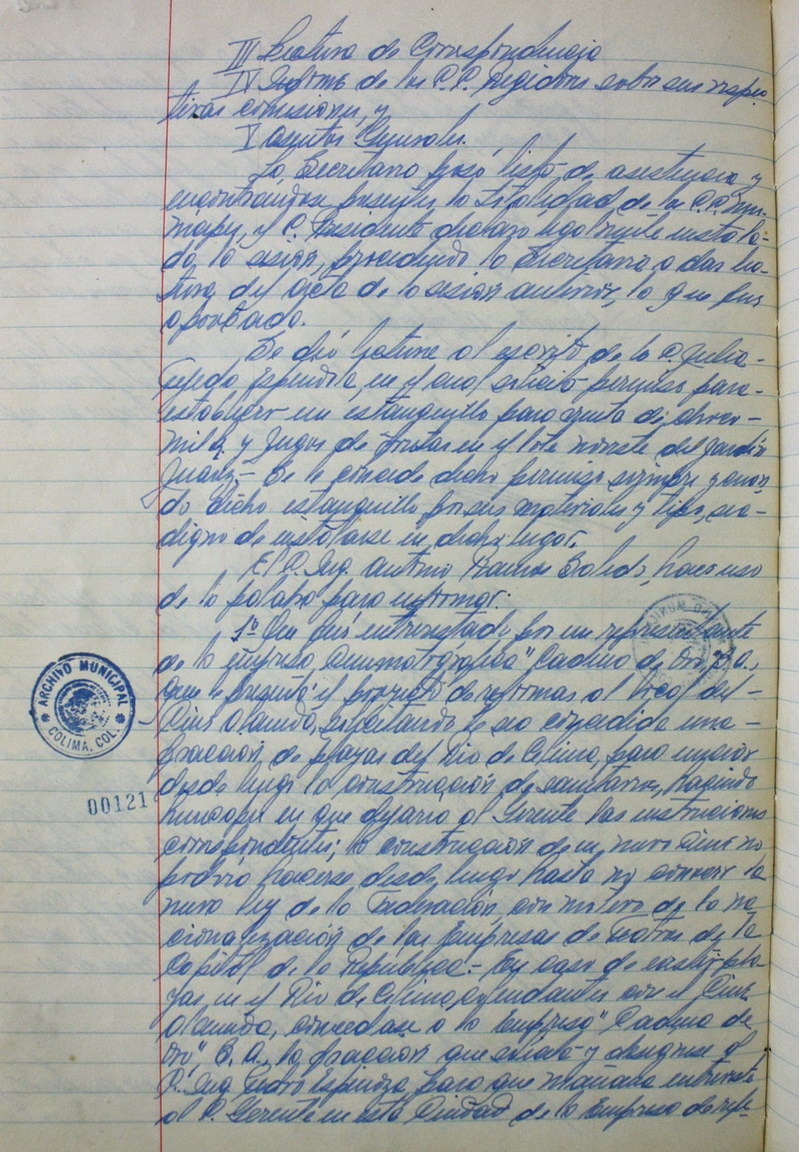 III Lectura de Correspondencia
IV Informe de los C.C. Regidores sobre sus respec-
tivas comisiones, y
V Asuntos Generales.
La Secretaria pasó lista de asistencia y
encontrándose presentes la totalidad de los C.C. Mu-
nícipes, el C. Presidente declaró legalmente instala-
da la sesión, procediendo la Secretaria a dar lec-
tura del acta de la sesión anterior, la que fué
aprobada.
Se dió lectura al escrito de la C. Julia-
Espíndola, en el cual solicita permiso para-
establecer un estanquillo para venta de
y jugos de frutas en el lote norte del jardín
Juárez.- Se le concede dicho permiso siempre y cuan-
do dicho estanquillo por sus materiales y tipo, sea-
digno de instalarse en dicho lugar.
El C. Ing. Antonio hace uso
de la palabra para informar:
1º Que fué entrevistado por un representante
de la empresa Cinematográfica "Cadena de Oro" S.A.,
que le presentó el proyecto de reformas al local del-
Cine Alameda, solicitando le sea concedida una-
fracción de playas del Río de Colima, para iniciar
desde luego la construcción de sanitarios, haciendo
hincapié en que dejaría al Gerente las instrucciones
correspondientes; la construcción de un nuevo Cine no
podría hacerse desde luego hasta no conocer la
nueva ley de la Federación, con motivo de la na-
cionalización de las Empresas de Teatros de la
Capital de la República.- En caso de existir pla-
yas en el Río de Colima, colindantes con el Cine
Alameda, concédase a la Empresa "Cadena de
Oro" S. A. la fracción que solicita y desígnese al
C. Ing. Pedro Espinosa para que mañana entreviste
al C. Gerente en esta Ciudad de la Empresa de refe-
ARCHIVO MUNICIPAL
COLIMA, COL.
00121